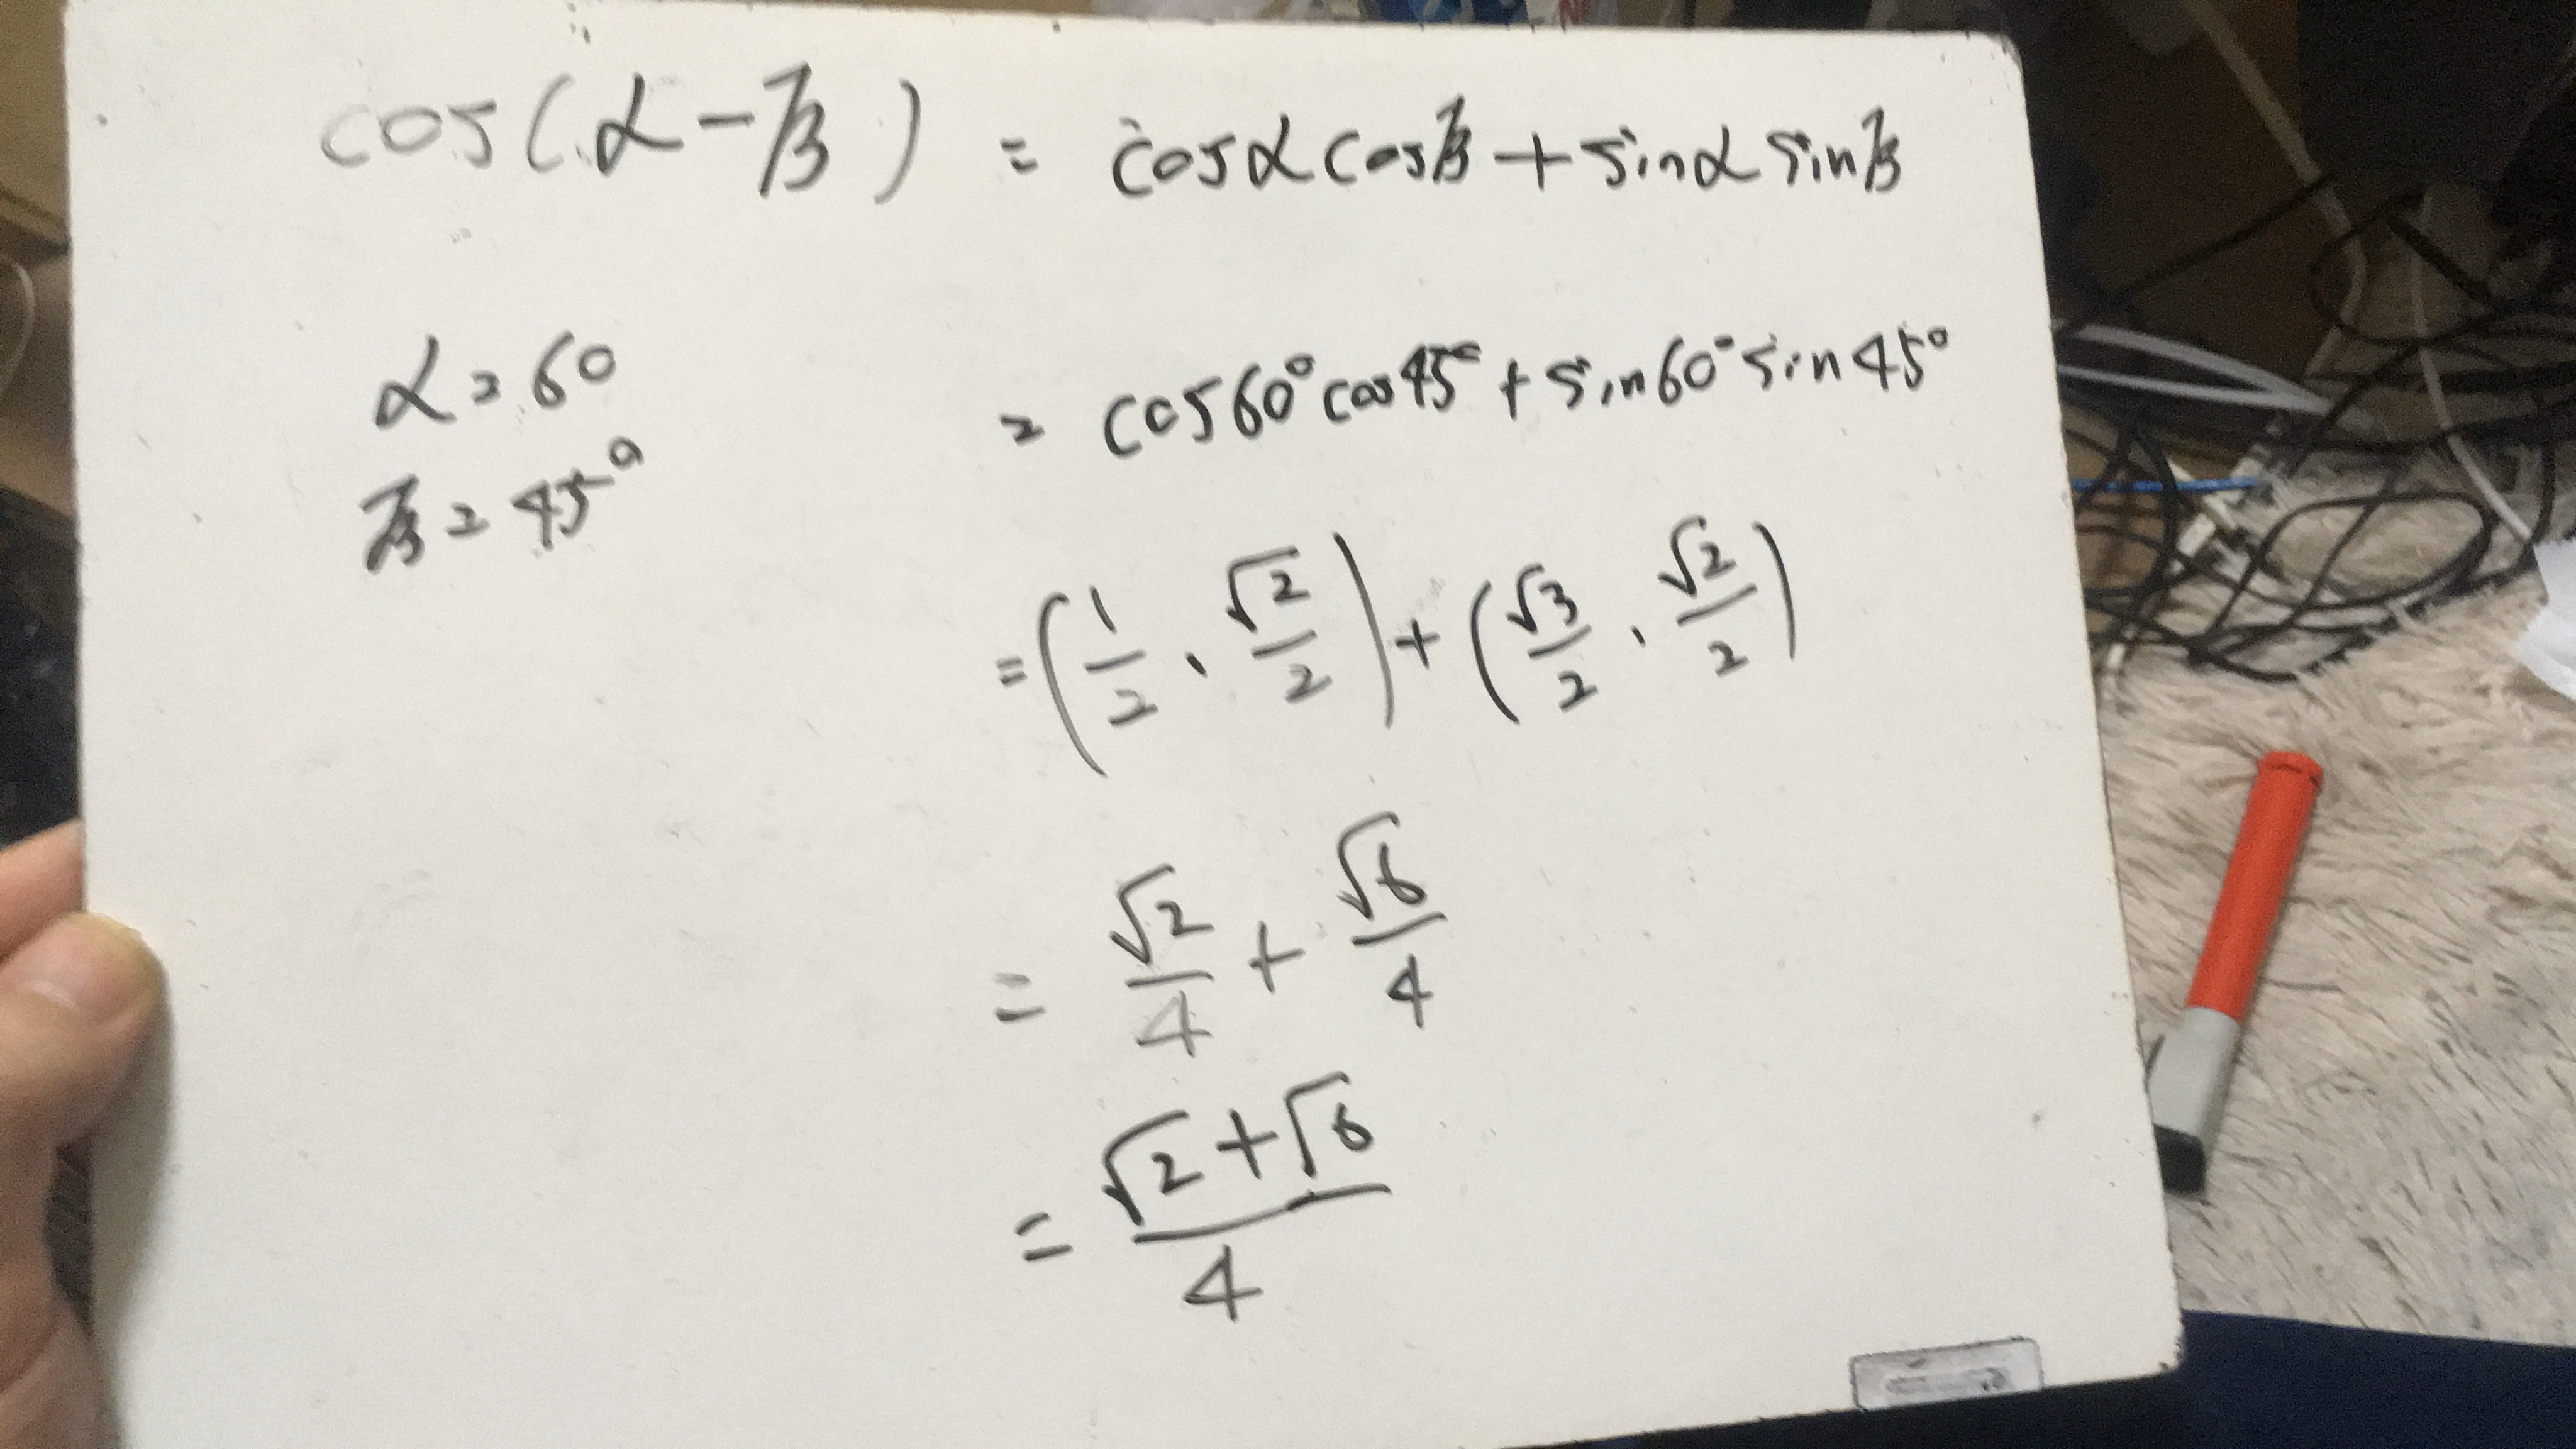 cos(α-β) = cosα cosβ + sinα sinβ
α = 60
= cos60° cos45° + sin60° sin45°
β = 45°
= (1/2 · √2/2) + (√3/2 · √2/2)
= √2/4 + √6/4
= (√2+√6)/4